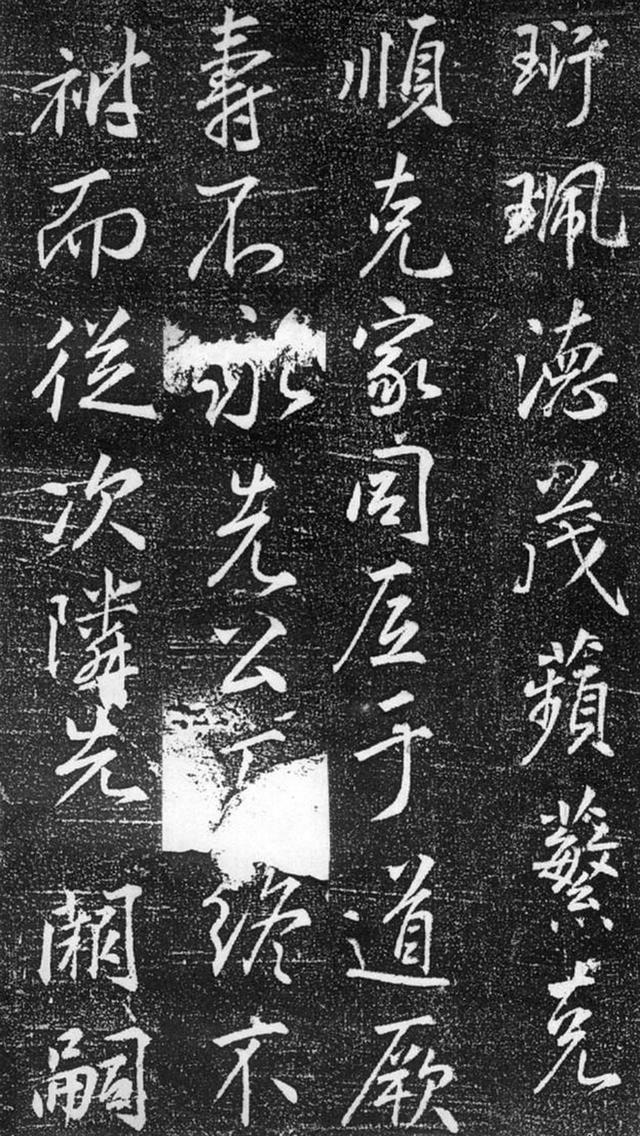 珩珮德茂蘋蘩克
順克家于道厥
壽不永先公終不
祔而從次隣先闕嗣